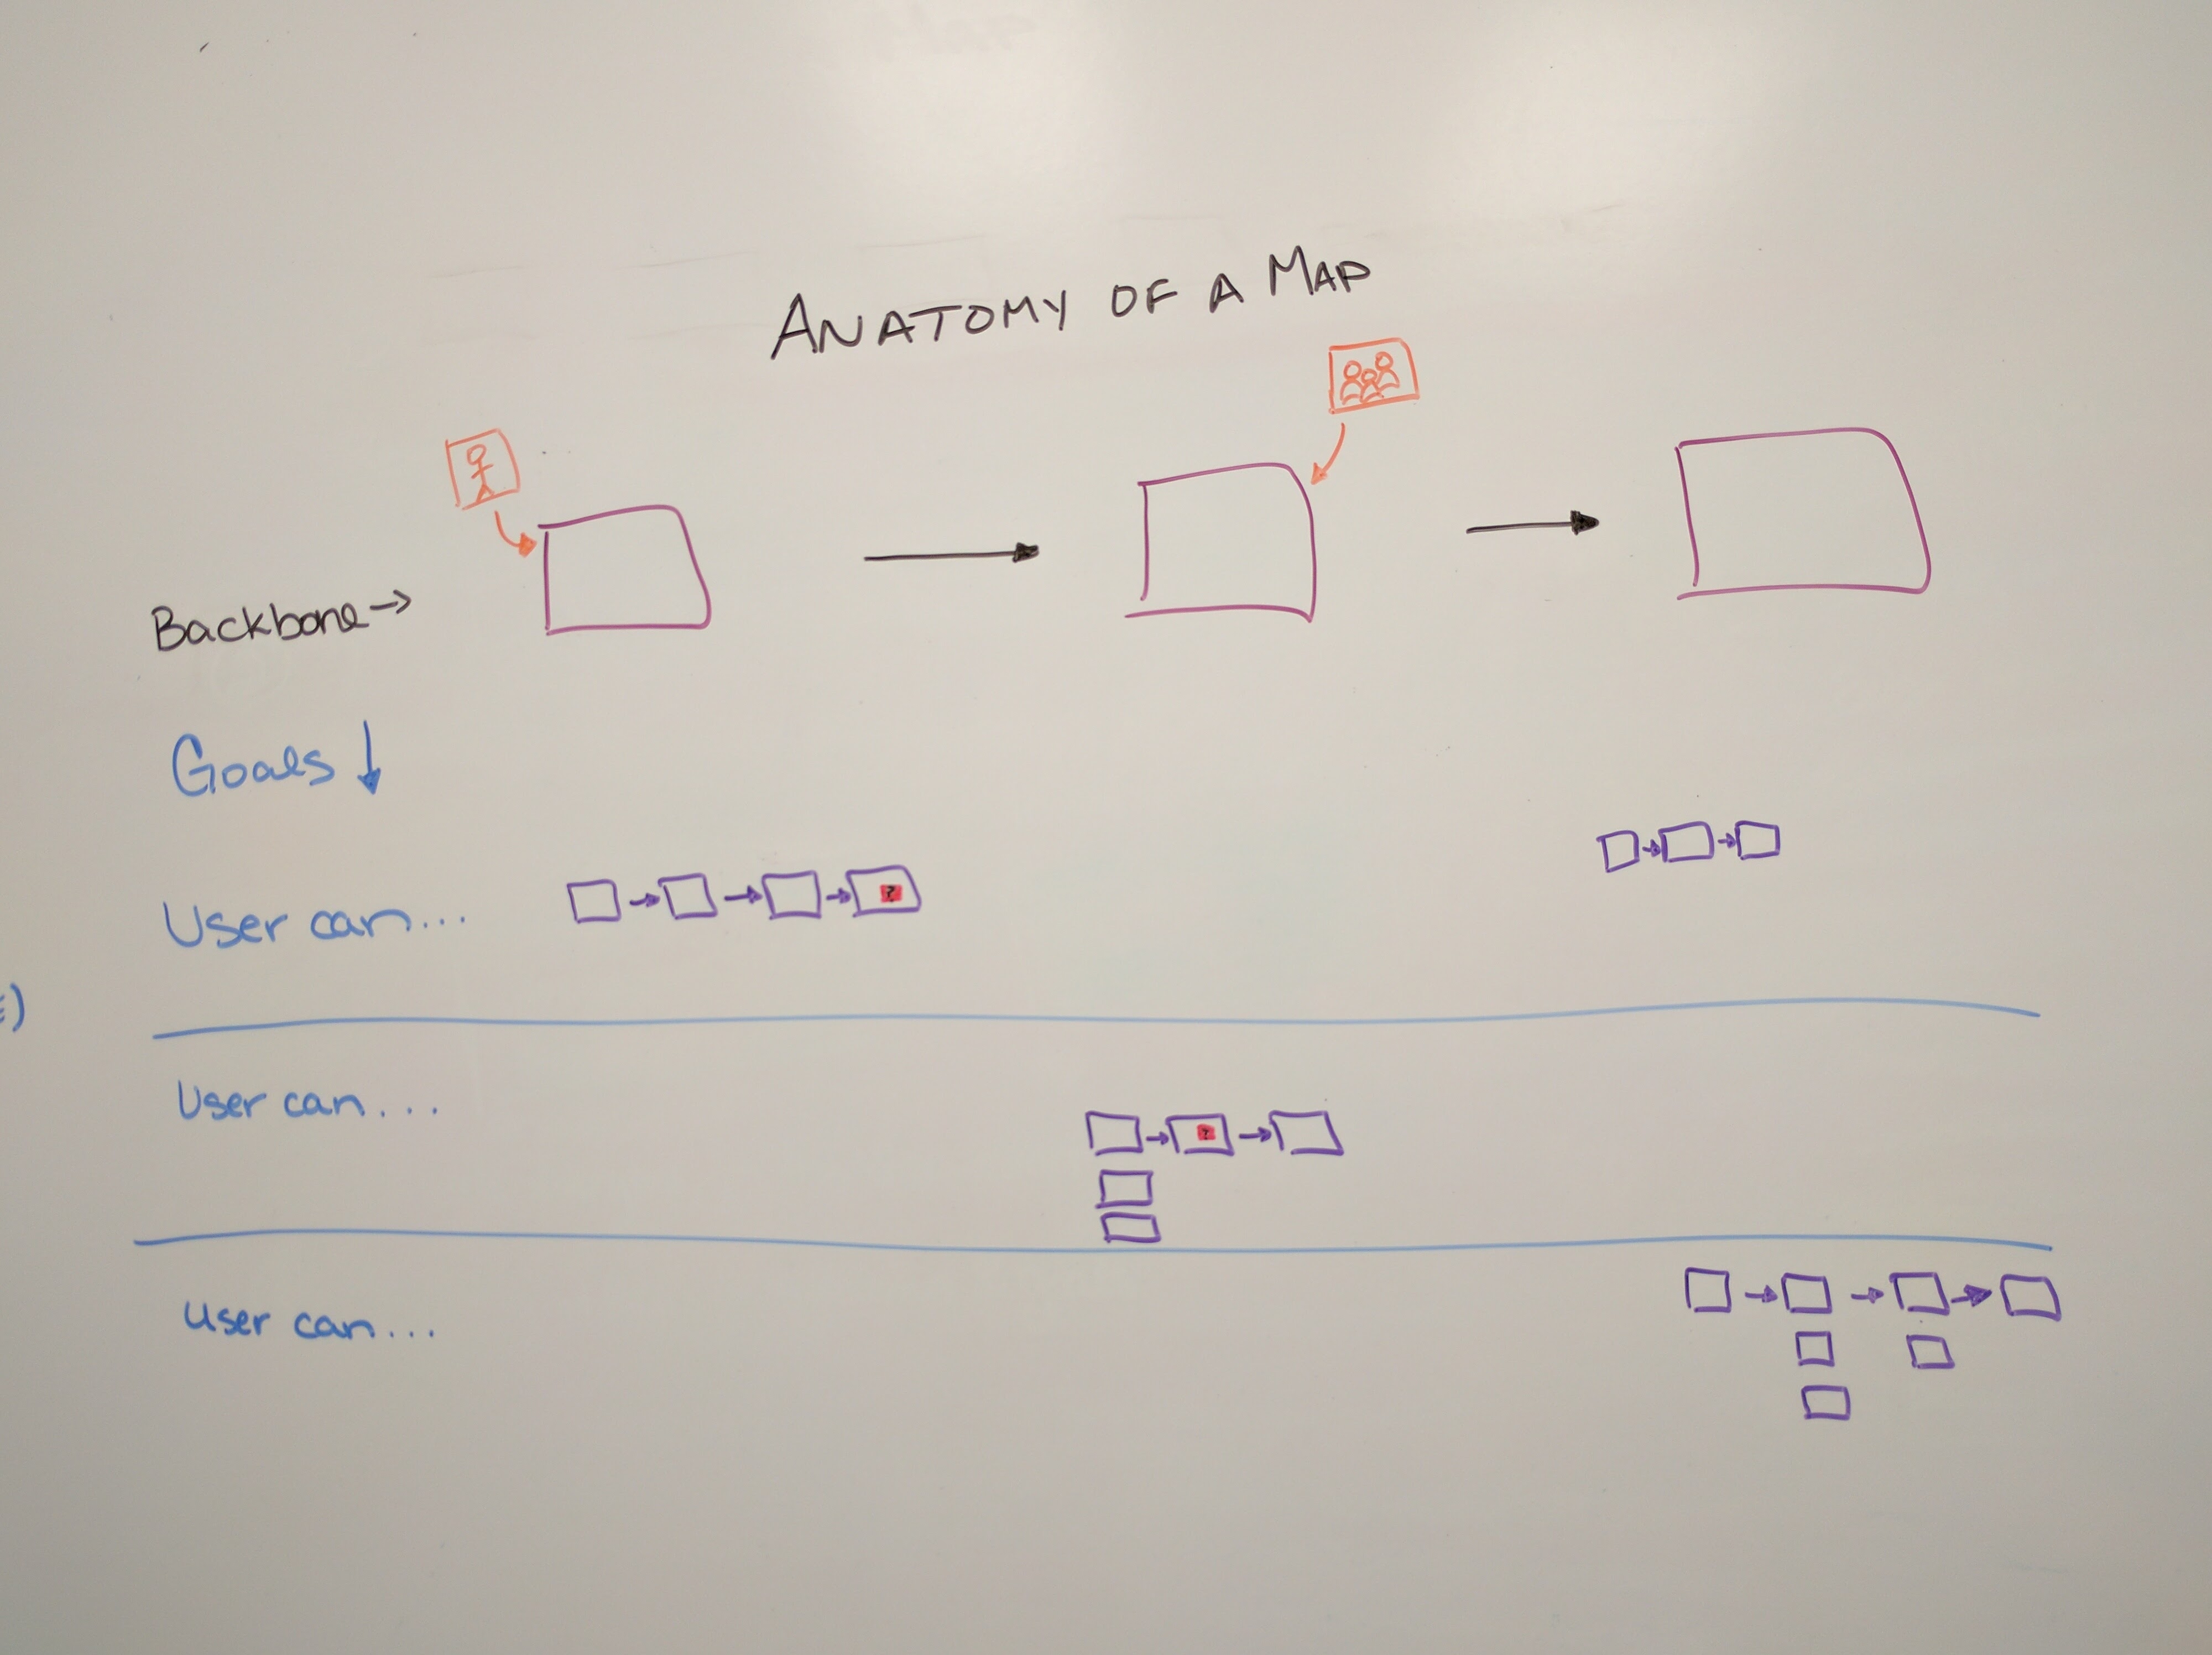 ANATOMY OF A MAP
Backbone →
Goals ↓
User can...
?
)
User can....
?
User can...